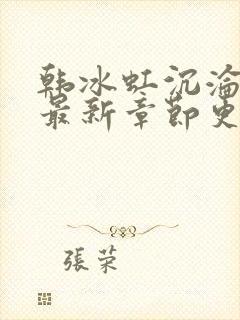 韩冰虹沉沦
最新章节更
張荣